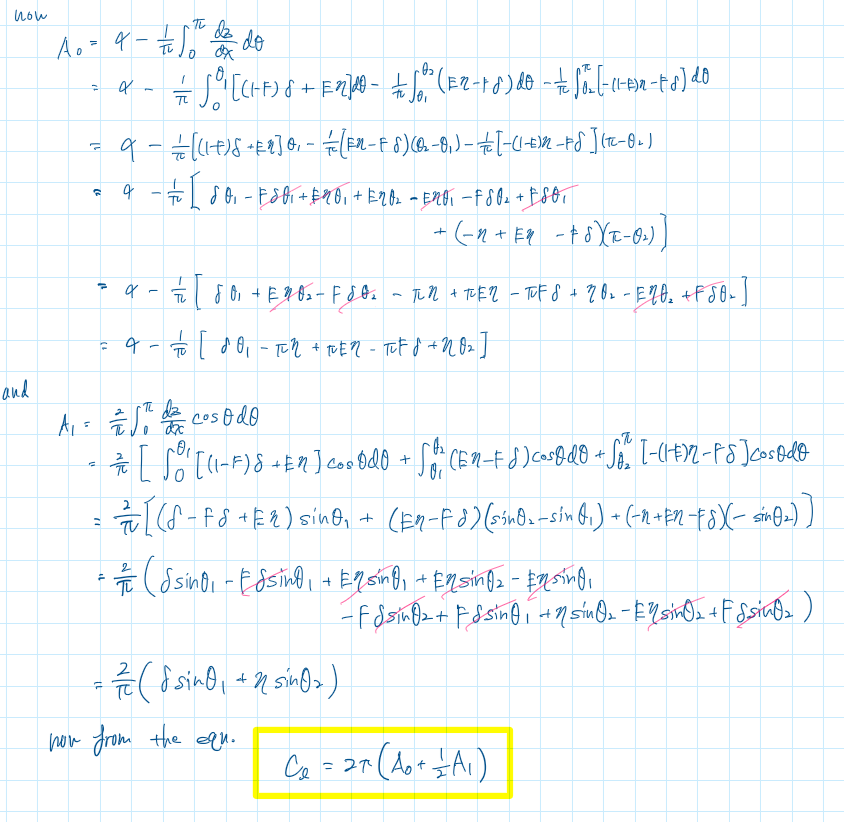 now
A₀ = α - 1/π ∫₀^π dz/dx dθ
= α - 1/π ∫₀^θ₁ [(1-F)δ + Eη]dθ - 1/π ∫_θ₁^θ₂ (Eη - Fδ)dθ - 1/π ∫_θ₂^π [-(1-E)η - Fδ]dθ
= α - 1/π[(1-F)δ + Eη]θ₁ - 1/π(Eη - Fδ)(θ₂-θ₁) - 1/π[-(1-E)η - Fδ](π-θ₂)
= α - 1/π [ δθ₁ - Fδθ₁ + Eηθ₁ + Eηθ₂ - Eηθ₁ - Fδθ₂ + Fδθ₁
+ (-η + Eη - Fδ)(π-θ₂) ]
= α - 1/π [ δθ₁ + Eηθ₂ - Fδθ₂ - πη + πEη - πFδ + ηθ₂ - Eηθ₂ + Fδθ₂ ]
= α - 1/π [ δθ₁ - πη + πEη - πFδ + ηθ₂ ]
and
A₁ = 2/π ∫₀^π dz/dx cosθdθ
= 2/π [ ∫₀^θ₁ [(1-F)δ + Eη] cosθdθ + ∫_θ₁^θ₂ (Eη - Fδ)cosθdθ + ∫_θ₂^π [-(1-E)η - Fδ]cosθdθ
= 2/π [(δ - Fδ + Eη) sinθ₁ + (Eη - Fδ)(sinθ₂ - sinθ₁) + (-η + Eη - Fδ)(- sinθ₂) ]
= 2/π ( δsinθ₁ - Fδsinθ₁ + Eηsinθ₁ + Eηsinθ₂ - Eηsinθ₁
- Fδsinθ₂ + Fδsinθ₁ + ηsinθ₂ - Eηsinθ₂ + Fδsinθ₂ )
= 2/π ( δsinθ₁ + ηsinθ₂ )
now from the eqn.
Cℓ = 2π(A₀ + 1/2 A₁)